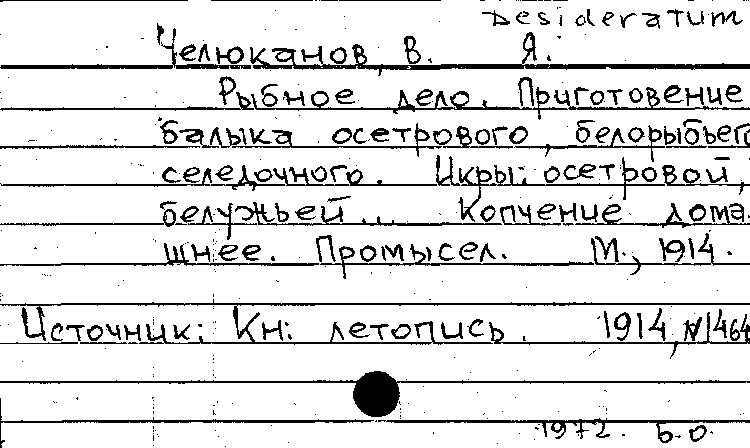 Desideratum
Челюканов, В. Я.
Рыбное дело. Приготовение
балыка осетрового, белорыбьего
селедочного. Икры: осетровой,
белужьей... Копчение дома
шнее. Промысел. М., 1914.
Источник: Кн: летопись. 1914, №1464
1972. Б.О.